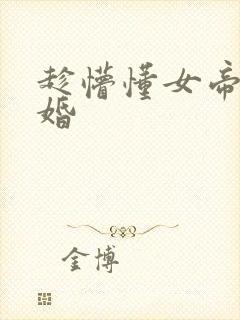 趁懵懂女帝
婚
金博